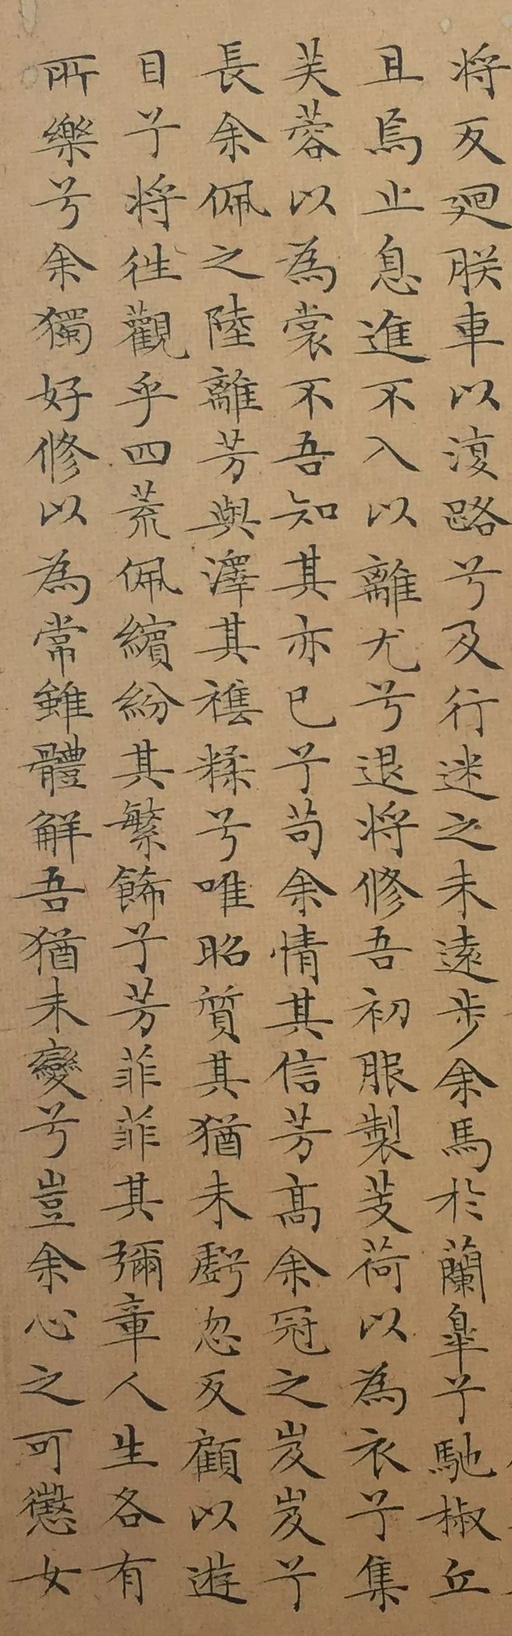 将反廻朕車以復路兮及行迷之未遠步余馬於蘭皐兮馳椒丘
且焉止息進不入以離尤兮退将修吾初服製芰荷以為衣兮集
芙蓉以為裳不吾知其亦已兮苟余情其信芳高余冠之岌岌兮
長余佩之陸離芳與澤其襍糅兮唯昭質其猶未虧忽反顧以遊
目兮将徃觀乎四荒佩繽紛其繁餙兮芳菲菲其彌章人生各有
所樂兮余獨好修以為常雖體解吾猶未變兮豈余心之可懲女